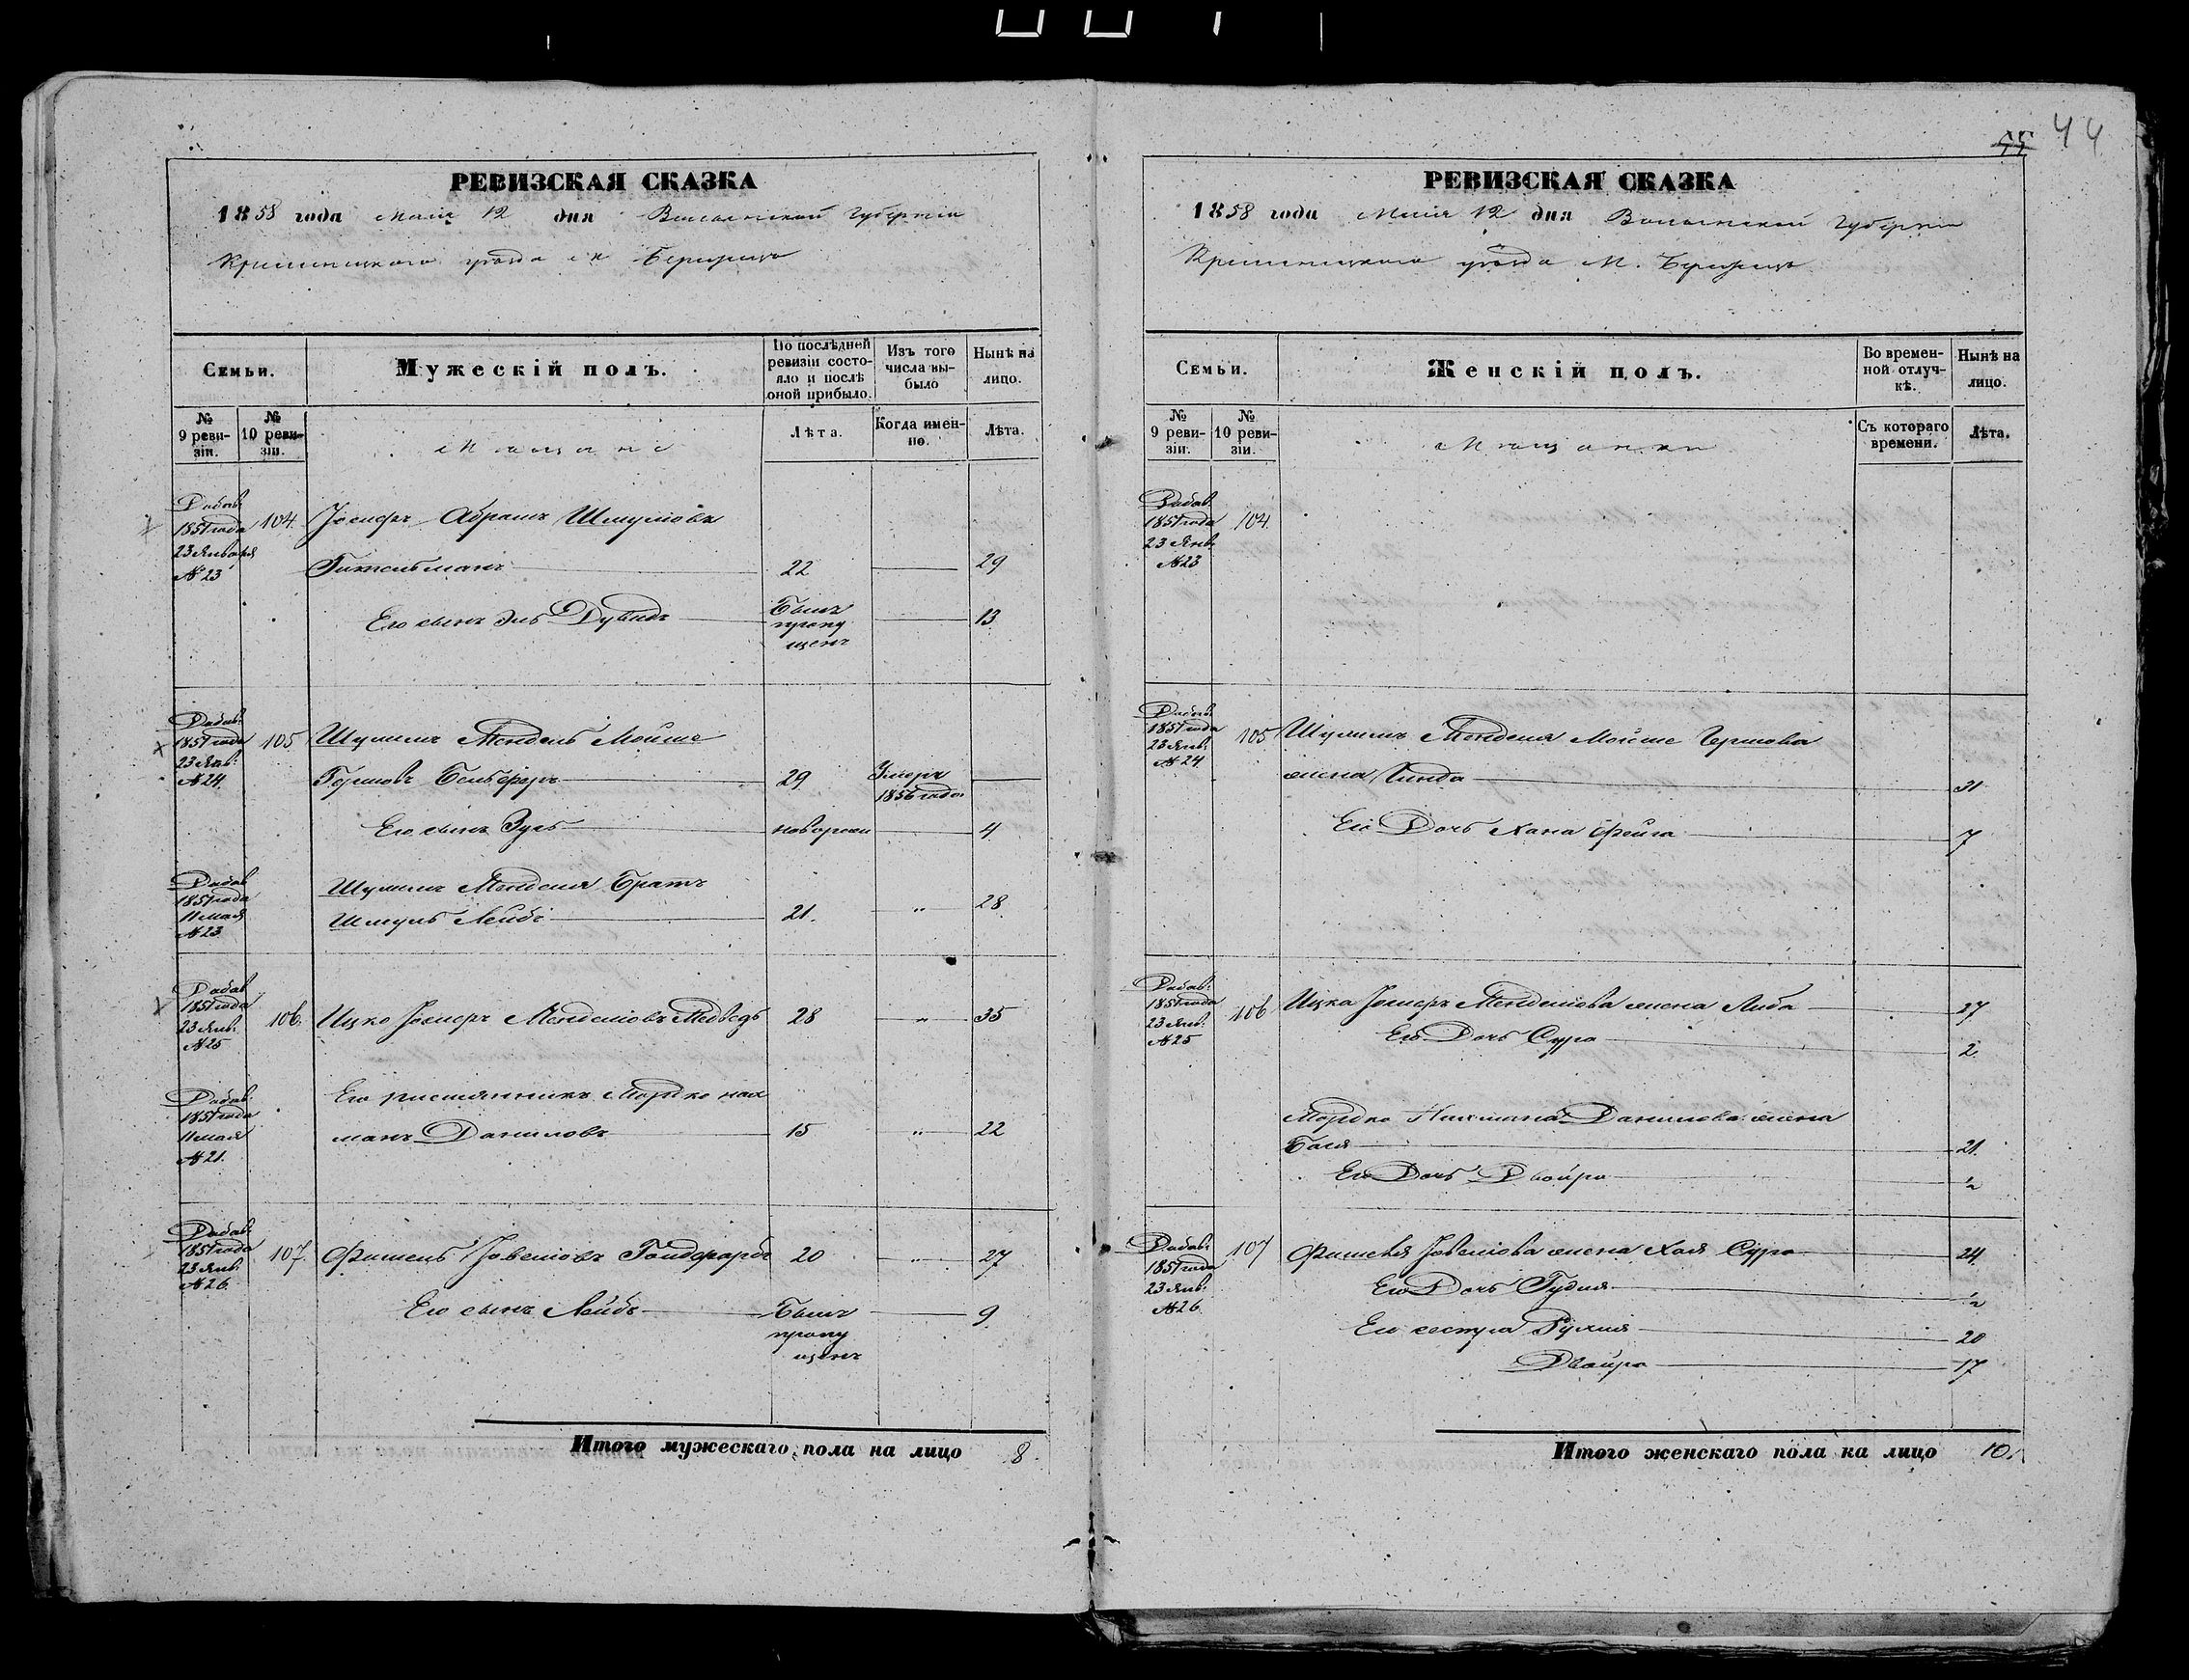 44
55
РЕВИЗСКАЯ СКАЗКА
1858 года Мая 12 дня Волынской Губерніи
Кременецкого уѣзда м Бережцы
Семьи.
Мужескій полъ.
По послѣдней ревизіи состояло и послѣ оной прибыло.
Изъ того числа выбыло
Нынѣ на лицо.
№ 9 ревизіи.
№ 10 ревизіи.
Мѣщане
Лѣта.
Когда именно.
Лѣта.
Добав:
1851 года 104. Іосифъ Абрамъ Шмулiовъ
23 Января
№ 23 22 29
Его сынъ Эль Дувидъ Былъ пропущенъ 13
Добав:
1851 года 105 Шулимъ Мендель Мойше
23 Янв:
№ 24. Гершовъ 29 Умеръ 1856 года
Его сынъ Зусь новорож 4
Добав
1851 года Шулима Менделя Братъ
11 мая
№ 23 Шмуль Лейбъ 21. 28
Добав
1851 года
23 Янв: 106. Ицко Іосифъ Менделiовъ Медведь 28 35
№ 25
Добав:
1851 года Его племянникъ Мордко Нах
11 мая манъ Даниловъ 15 22
№ 21.
Добав
1851 года 107. Фишель Іовелiовъ Гольдфарбъ 20 27
23 Янв
№ 26.
Его сынъ Лейбъ Былъ пропущенъ 9
Итого мужескаго пола на лицо 8.
РЕВИЗСКАЯ СКАЗКА
1858 года Мая 12 дня Волынской Губерніи
Кременецкого уѣзда М. Бережцы
Семьи.
Женскій полъ.
Во временной отлучкѣ.
Нынѣ на лицо.
№ 9 ревизіи.
№ 10 ревизіи.
Мѣщанки
Съ котораго времени.
Лѣта.
Добав.
1851 года 104.
23 Янв.
№ 23
Добав:
1851 года 105 Шулимъ Менделя Мойше Гершова
23 Янв:
№ 24. жена Гинда 31
Его Дочь Хана Фейга 7
Добав:
1851 года 106 Ицка Іосифъ Менделiова жена Либа 27
23 Янв:
№ 25 Его Дочь Сура 2
Мордко Нахмана Данилова жена
Бася 21.
Его Дочь Двойра ½
Добав: 107 Фишеля Іовелiова жена Хая Сура 24.
1851 года
23 Янв: Его Дочь Гудля ½
№ 26. Его сестра Рухля 20
Двойра 17
Итого женскаго пола на лицо 10.